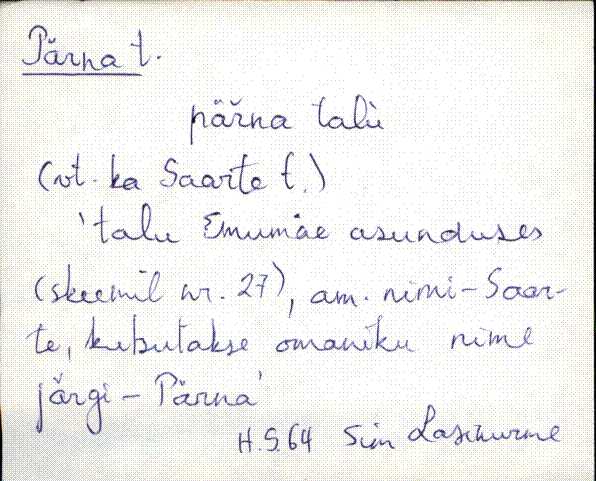 Pärna t.
pär̆na talù
(vt. ka Saarte t.)
'talu Emumäe asunduses
(skeemil nr. 27), am. nimi - Saar-
te, kutsutakse omaniku nime
järgi - Pärna'
H.S. 64 Sim Lasinurme